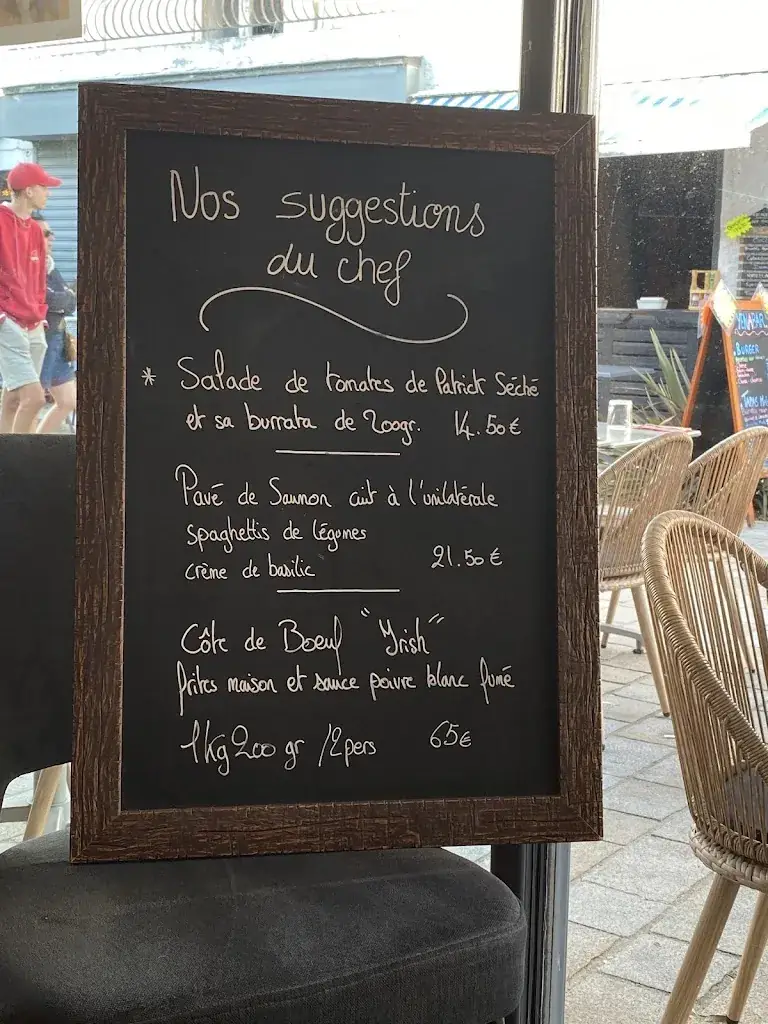 Nos suggestions
du chef
* Salade de tomates de Patrick Séché
et sa burrata de 200gr. 14.50€
Pavé de Saumon cuit à l'unilatérale
spaghettis de légumes
crème de basilic 21.50€
Côte de Boeuf "Irish"
frites maison et sauce poivre blanc fumé
1Kg200 gr /2pers 65€
BURGER